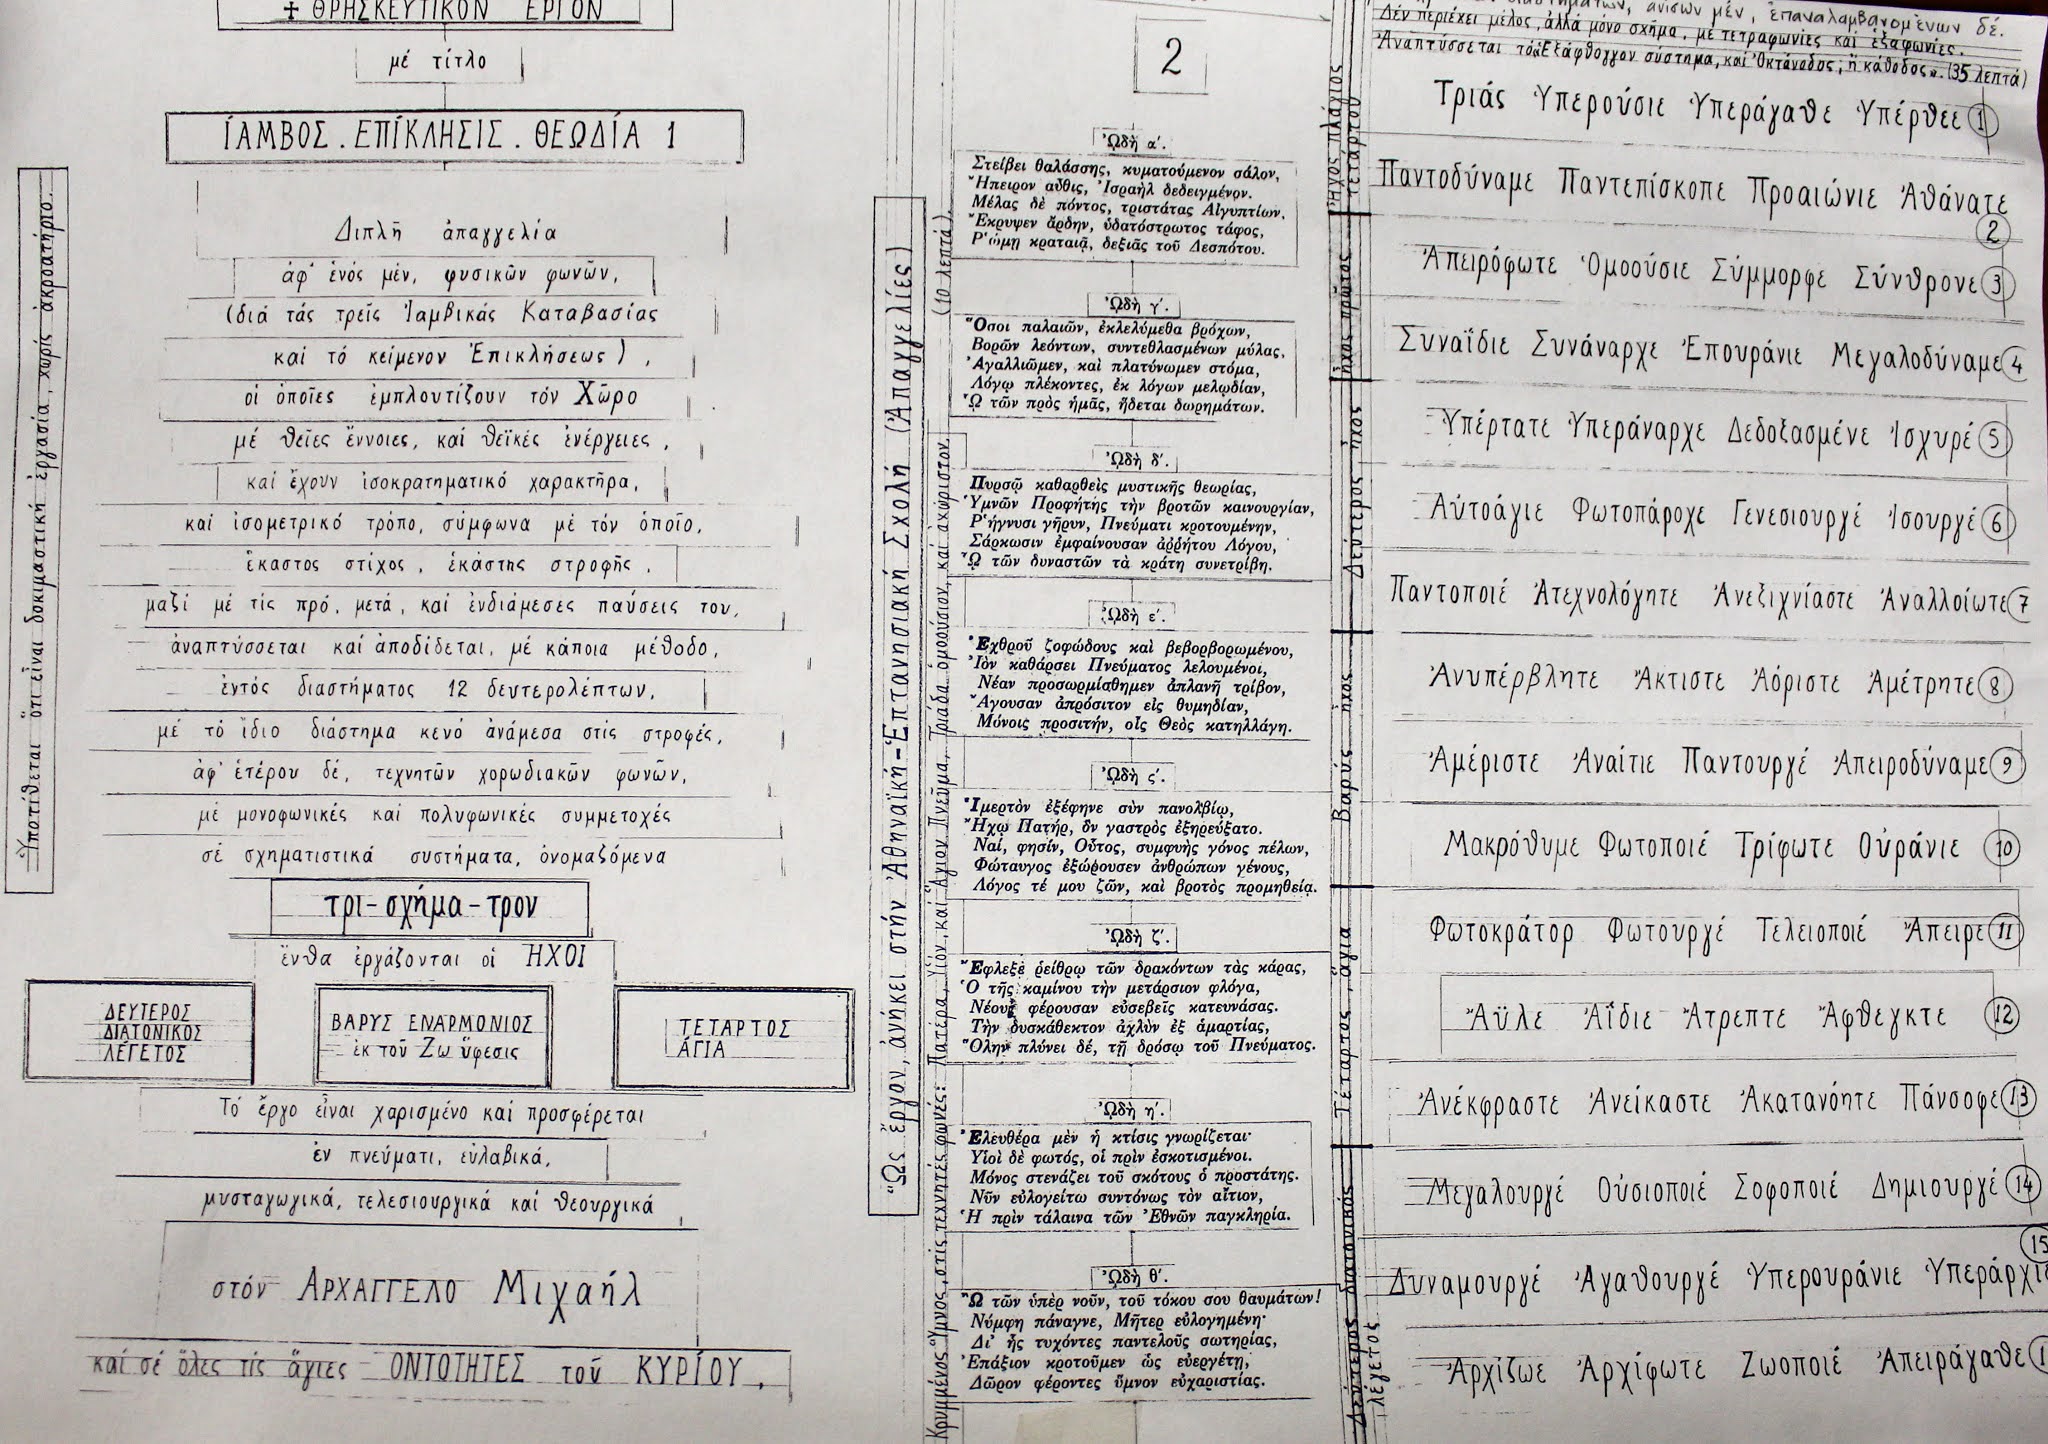 ✝ ΘΡΗΣΚΕΥΤΙΚΟΝ ΕΡΓΟΝ
μέ τίτλο
ΊΑΜΒΟΣ . ΕΠΊΚΛΗΣΙΣ . ΘΕΩΔΊΑ 1
Διπλῆ ἀπαγγελία
ἀφ' ἑνός μέν, φυσικῶν φωνῶν,
(διά τάς τρεῖς Ἰαμβικάς Καταβασίας
καί τό κείμενον Ἐπικλήσεως),
οἱ ὁποῖες ἐμπλουτίζουν τόν Χῶρο
μέ θεῖες ἔννοιες, καί θεϊκές ἐνέργειες,
καί ἔχουν ἰσοκρατηματικό χαρακτῆρα,
καί ἰσομετρικό τρόπο, σύμφωνα μέ τόν ὁποῖο,
ἕκαστος στίχος, ἑκάστης στροφῆς,
μαζί μέ τίς πρό, μετά, καί ἐνδιάμεσες παύσεις του,
ἀναπτύσσεται καί ἀποδίδεται, μέ κάποια μέθοδο,
ἐντός διαστήματος 12 δευτερολέπτων,
μέ τό ἴδιο διάστημα κενό ἀνάμεσα στίς στροφές,
ἀφ' ἑτέρου δέ, τεχνητῶν χορωδιακῶν φωνῶν,
μέ μονοφωνικές καί πολυφωνικές συμμετοχές
σέ σχηματιστικά συστήματα, ὀνομαζόμενα
τρι-σχήμα-τρον
ἔνθα ἐργάζονται οἱ ΗΧΟΙ
ΔΕΥΤΕΡΟΣ
ΔΙΑΤΟΝΙΚΟΣ
ΛΕΓΕΤΟΣ
ΒΑΡΥΣ ΕΝΑΡΜΟΝΙΟΣ
ἐκ τοῦ Ζω ὕφεσις
ΤΕΤΑΡΤΟΣ
ΆΓΙΑ
Τό ἔργο εἶναι χαρισμένο καί προσφέρεται
ἐν πνεύματι, εὐλαβικά,
μυσταγωγικά, τελεσιουργικά καί θεουργικά
στόν ΑΡΧΑΓΓΕΛΟ Μιχαήλ
καί σέ ὅλες τίς ἅγιες ΟΝΤΟΤΗΤΕΣ τοῦ ΚΥΡΊΟΥ.
Ὑποτίθεται ὅτι εἶναι δοκιμαστική ἐργασία, χωρίς ἀκροατήριο.
Ὡς ἔργον, ἀνήκει στήν Ἀθηναϊκή-Ἑπτανησιακή Σχολή (Ἀπαγγελίες)
Κρυμμένος Ὕμνος, στίς τεχνητές φωνές: Πατέρα, Υἱόν, καί Ἅγιον Πνεῦμα, Τριάδα ὁμοούσιον, καί ἀχώριστον.
(10 λεπτά)
2
Ὠδὴ α´.
Στείβει θαλάσσης, κυματούμενον σάλον,
Ἤπειρον αὖθις, Ἰσραὴλ δεδειγμένον.
Μέλας δὲ πόντος, τριστάτας Αἰγυπτίων,
Ἔκρυψεν ἄρδην, ὑδατόστρωτος τάφος,
Ρ῾ώμῃ κραταιᾷ, δεξιᾶς τοῦ Δεσπότου.
Ὠδὴ γ´.
Ὅσοι παλαιῶν, ἐκλελύμεθα βρόχων,
Βορῶν λεόντων, συντεθλασμένων μύλας,
Ἀγαλλιῶμεν, καὶ πλατύνωμεν στόμα,
Λόγῳ πλέκοντες, ἐκ λόγων μελῳδίαν,
ᾯ τῶν πρὸς ἡμᾶς, ἥδεται δωρημάτων.
Ὠδὴ δ´.
Πυρσῷ καθαρθεὶς μυστικῆς θεωρίας,
Ὑμνῶν Προφήτης τὴν βροτῶν καινουργίαν,
Ρ῾ήγνυσι γῆρυν, Πνεύματι κροτουμένην,
Σάρκωσιν ἐμφαίνουσαν ἀῤῥήτου Λόγου,
ᾯ τῶν δυναστῶν τὰ κράτη συνετρίβη.
Ὠδὴ ε´.
Ἐχθροῦ ζοφώδους καὶ βεβορβορωμένου,
Ἰὸν καθάρσει Πνεύματος λελουμένοι,
Νέαν προσωρμίσθημεν ἀπλανῆ τρίβον,
Ἄγουσαν ἀπρόσιτον εἰς θυμηδίαν,
Μόνοις προσιτήν, οἷς Θεὸς κατηλλάγη.
Ὠδὴ ς´.
Ἱμερτὸν ἐξέφηνε σὺν πανολβίῳ,
Ἤχῳ Πατήρ, ὃν γαστρὸς ἐξηρεύξατο.
Ναί, φησίν, Οὗτος, συμφυὴς γόνος πέλων,
Φώταυγος ἐξώρουσεν ἀνθρώπων γένους,
Λόγος τέ μου ζῶν, καὶ βροτὸς προμηθείᾳ.
Ὠδὴ ζ´.
Ἔφλεξε ῥείθρῳ τῶν δρακόντων τὰς κάρας,
Ὁ τῆς καμίνου τὴν μετάρσιον φλόγα,
Νέους φέρουσαν εὐσεβεῖς κατευνάσας.
Τὴν δυσκάθεκτον ἀχλὺν ἐξ ἁμαρτίας,
Ὅλην πλύνει δέ, τῇ δρόσῳ τοῦ Πνεύματος.
Ὠδὴ η´.
Ἐλευθέρα μὲν ἡ κτίσις γνωρίζεται·
Υἱοὶ δὲ φωτός, οἱ πρὶν ἐσκοτισμένοι.
Μόνος στενάζει τοῦ σκότους ὁ προστάτης.
Νῦν εὐλογείτω συντόνως τὸν αἴτιον,
Ἡ πρὶν τάλαινα τῶν Ἐθνῶν παγκληρία.
Ὠδὴ θ´.
Ὢ τῶν ὑπὲρ νοῦν, τοῦ τόκου σου θαυμάτων!
Νύμφη πάναγνε, Μῆτερ εὐλογημένη·
Δι' ἧς τυχόντες παντελοῦς σωτηρίας,
Ἐπάξιον κροτοῦμεν ὡς εὐεργέτῃ,
Δῶρον φέροντες ὕμνον εὐχαριστίας.
Ἦχος πλάγιος τετάρτου
ἦχος πρῶτος
Δεύτερος ἦχος
Βαρύς ἦχος
Τέταρτος, ἅγια
Δεύτερος διατονικός
λέγετος
διαστημάτων, ἀνίσων μέν, ἐπαναλαμβανομένων δέ.
Δέν περιέχει μέλος, ἀλλά μόνο σχῆμα, μέ τετραφωνίες καί ἑξαφωνίες.
Ἀναπτύσσεται τό «Ἑξάφθογγον σύστημα, καί Ὀκτάνοδος, ἤ κάθοδος». (35 λεπτά)
Τριάς Ὑπερούσιε Ὑπεράγαθε Ὑπέρθεε 1
Παντοδύναμε Παντεπίσκοπε Προαιώνιε Ἀθάνατε 2
Ἀπειρόφωτε Ὁμοούσιε Σύμμορφε Σύνθρονε 3
Συναΐδιε Συνάναρχε Ἐπουράνιε Μεγαλοδύναμε 4
Ὑπέρτατε Ὑπεράναρχε Δεδοξασμένε Ἰσχυρέ 5
Αὐτοάγιε Φωτοπάροχε Γενεσιουργέ Ἰσουργέ 6
Παντοποιέ Ἀτεχνολόγητε Ἀνεξιχνίαστε Ἀναλλοίωτε 7
Ἀνυπέρβλητε Ἄκτιστε Ἀόριστε Ἀμέτρητε 8
Ἀμέριστε Ἀναίτιε Παντουργέ Ἀπειροδύναμε 9
Μακρόθυμε Φωτοποιέ Τρίφωτε Οὐράνιε 10
Φωτοκράτορ Φωτουργέ Τελειοποιέ Ἄπειρε 11
Ἄϋλε Ἀΐδιε Ἄτρεπτε Ἄφθεγκτε 12
Ἀνέκφραστε Ἀνείκαστε Ἀκατανόητε Πάνσοφε 13
Μεγαλουργέ Οὐσιοποιέ Σοφοποιέ Δημιουργέ 14
Δυναμουργέ Ἀγαθουργέ Ὑπερουράνιε Ὑπεράρχιε 15
Ἀρχίζωε Ἀρχίφωτε Ζωοποιέ Ἀπειράγαθε 1